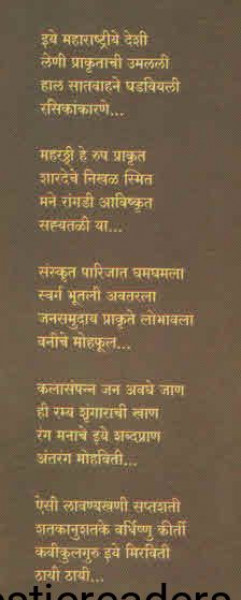 इये महाराष्ट्रीये देशी
लेणी प्राकृताची उमलली
हाल सातवाहने घडवियली
रसिकांकारणे...
महरठ्ठी हे रुप प्राकृत
शारदेचे निखळ स्मित
मने रांगडी आविष्कृत
सह्यतळी या...
संस्कृत पारिजात घमघमला
स्वर्ग भूतली अवतरला
जनसमुदाय प्राकृते लोभावला
वनीचे मोहफूल...
कलासंपन्न जन अवघे जाण
ही रम्य शृंगाराची खाण
रंग मनाचे इये शब्दप्राण
अंतरंग मोहविती...
ऐसी लावण्यखणी सप्तशती
शतकानुशतके वर्धिष्णु कीर्ती
कवीकुलगुरु इये मिरविती
ठायी ठायी...